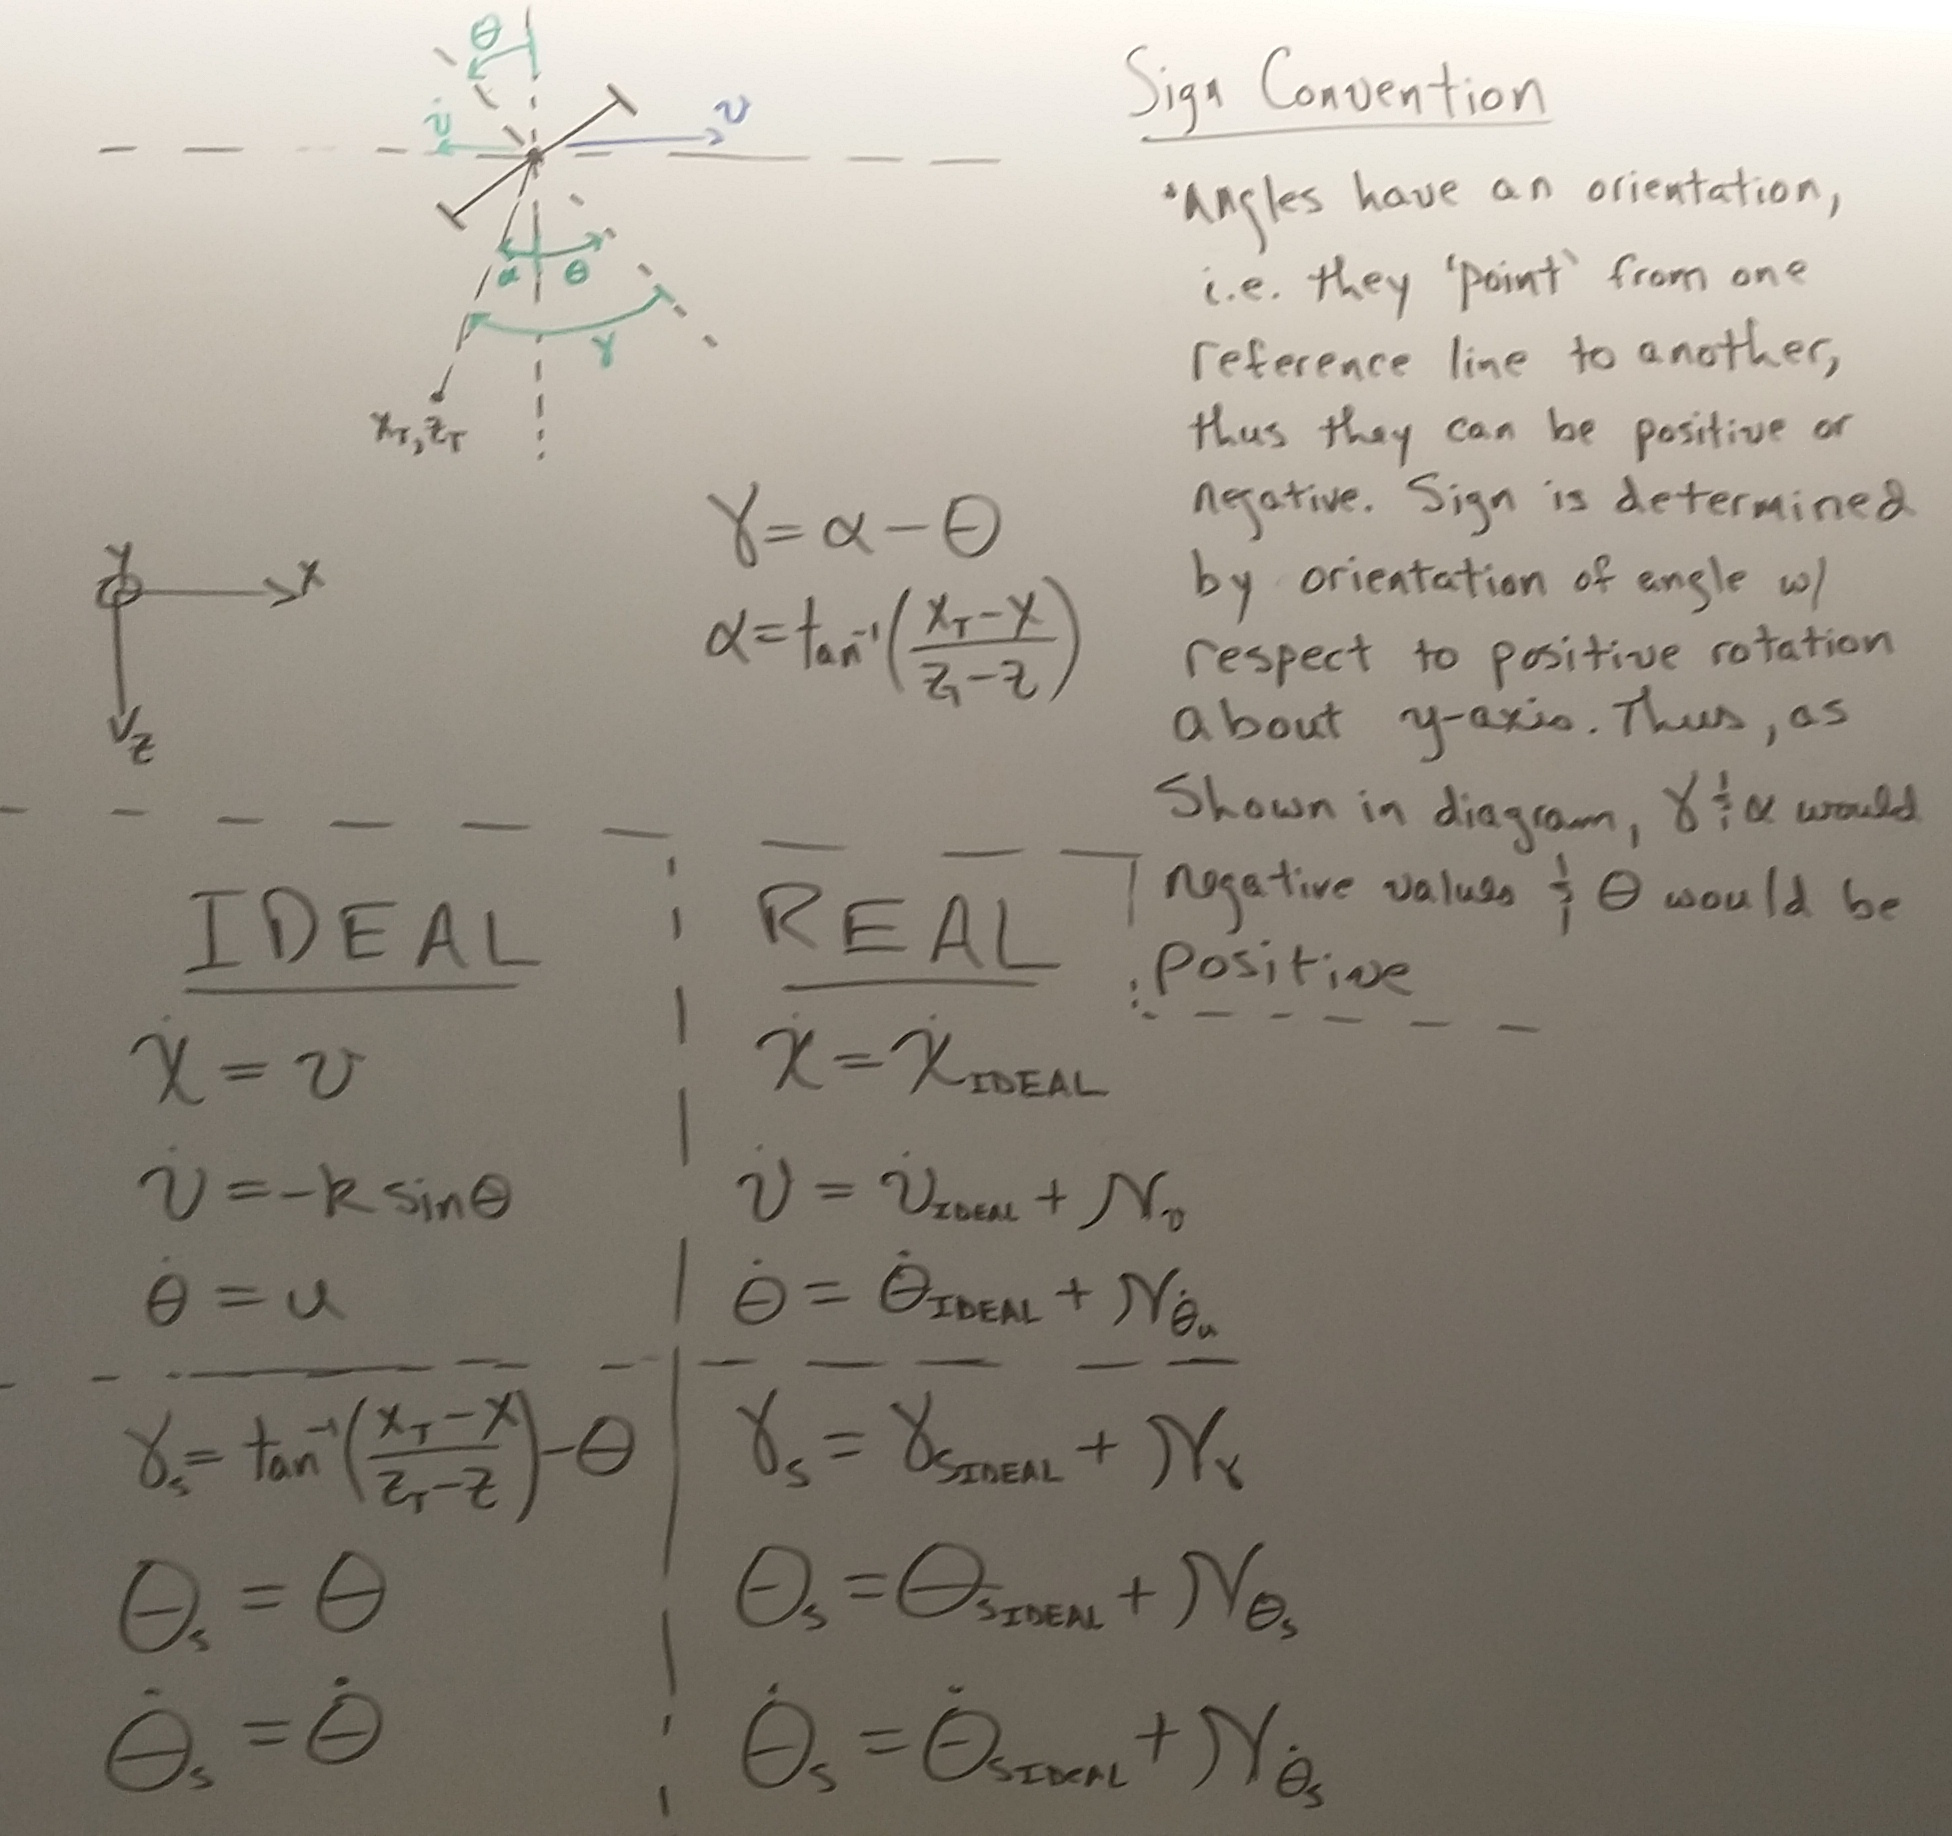 θ
v̇
v
α
θ
γ
x_T, z_T
Y
X
Z
γ = α − θ
α = tan⁻¹((x_T − x)/(z_T − z))
Sign Convention
•Angles have an orientation,
i.e. they 'point' from one
reference line to another,
thus they can be positive or
negative. Sign is determined
by orientation of angle w/
respect to positive rotation
about y-axis. Thus, as
Shown in diagram, γ & α would
negative values & θ would be
positive
IDEAL
ẋ = v
v̇ = −k sinθ
θ̇ = u
γ_s = tan⁻¹((x_T − x)/(z_T − z)) − θ
θ_s = θ
θ̇_s = θ̇
REAL
ẋ = ẋ_IDEAL
v̇ = v̇_IDEAL + N_v
θ̇ = θ̇_IDEAL + N_θ̇u
γ_s = γ_SIDEAL + N_γ
θ_s = θ_SIDEAL + N_θs
θ̇_s = θ̇_SIDEAL + N_θ̇s